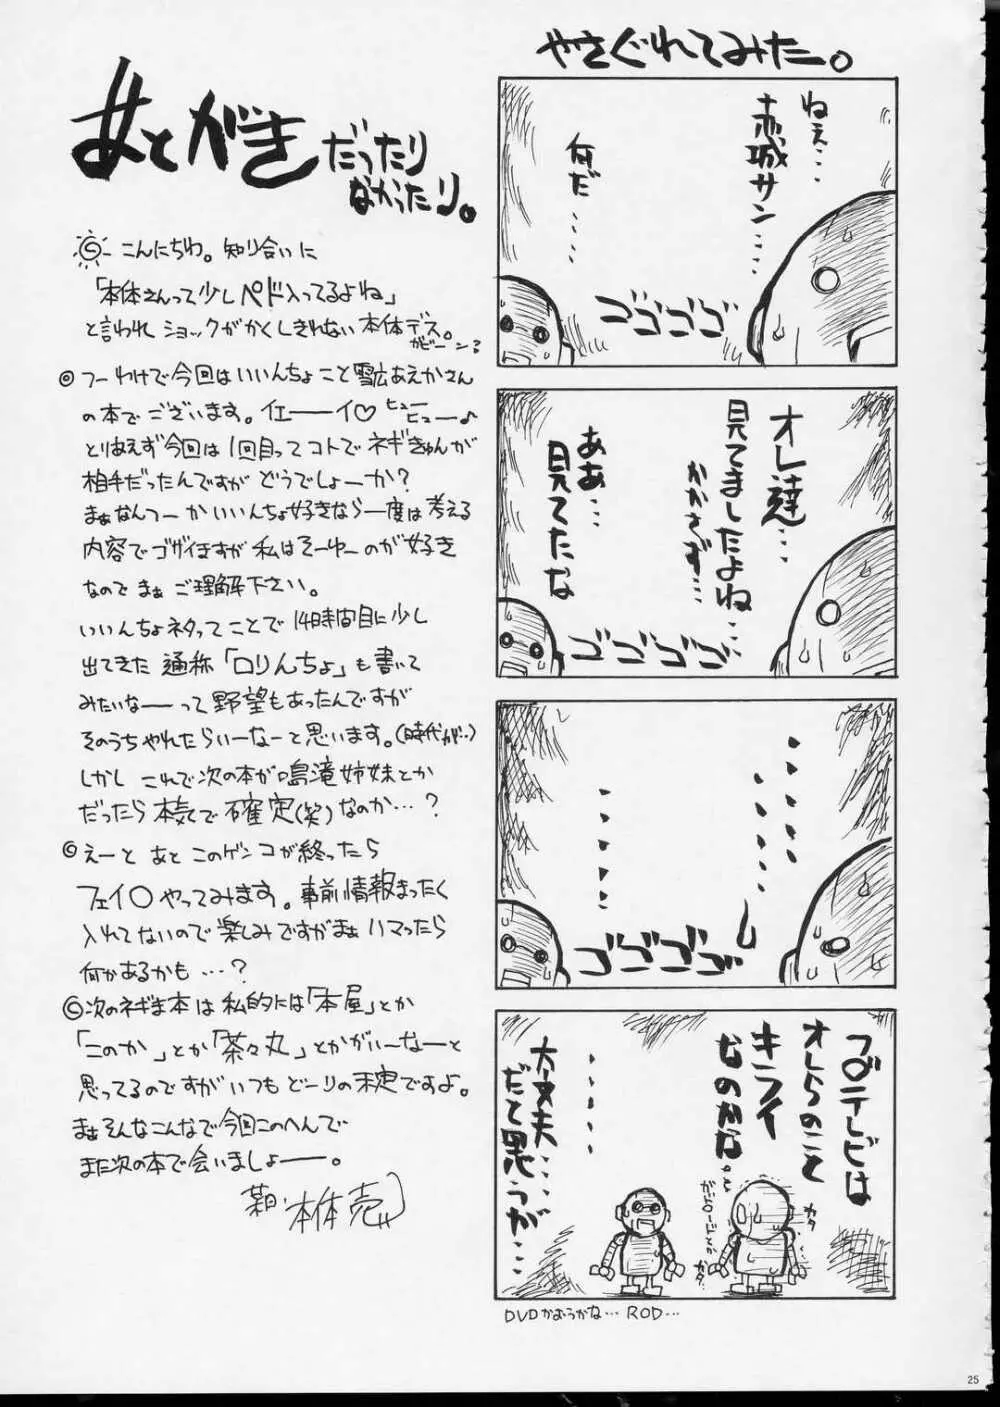 あとがき だったり
なかったり。
こんにちわ。知り合いに
「本体さんって少しペド入ってるよね」
と言われショックがかくしきれない本体デス。
ガビーン?
つーわけで今回はいいんちょこと雪広あえかさん
の本でございます。イエーーイ♡ ヒュー
ヒュー♪
とりあえず今回は1回目ってコトでネギきゅんが
相手だったんですがどうでしょーか?
まぁなんつーかいいんちょ好きなら一度は考える
内容でゴザイますが私はそーゆーのが好き
なのでまぁご理解下さい。
いいんちょネタってことで14時間目に少し
出てきた通称「ロりんちょ」も書いて
みたいなーーって野望もあったんですが
そのうちやれたらいーなーと思います。(時代が…)
しかしこれで次の本が鳴滝姉妹とか
だったら本気で確定(笑)なのか…?
えーとあとこのゲンコが終ったら
フェイ〇やってみます。事前情報まったく
入れてないので楽しみですがまぁハマったら
何かあるかも…?
次のネギま本は私的には「本屋」とか
「このか」とか「茶々丸」とかがいーなーと
思ってるのですがいつもどーりの未定ですよ。
まぁそんなこんなで今回このへんで
また次の本で会いましょーー。
本体売
やさぐれてみたー。
ねぇ…
赤城サン……
何だ……
ゴゴゴゴ
オレ達…
見てましたよね…
かかさず…
ああ…
見てたな
ゴゴゴゴ
ゴゴゴゴ
フ〇テレビは
オレらのこと
キライ
なのかな。
ガドロードとか
カタ
カタ
大丈夫…
だと思うが…
DVDかおうかな… ROD…
25